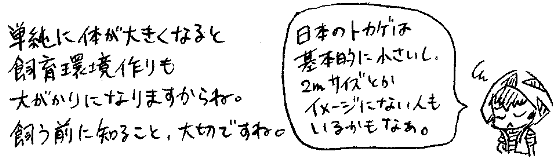 単純に体が大きくなると
飼育環境作りも
大がかりになりますからね。
飼う前に知ること、大切ですね。
日本のトカゲは
基本的に小さいし、
2mサイズとか
イメージにない人も
いるかもなぁ。